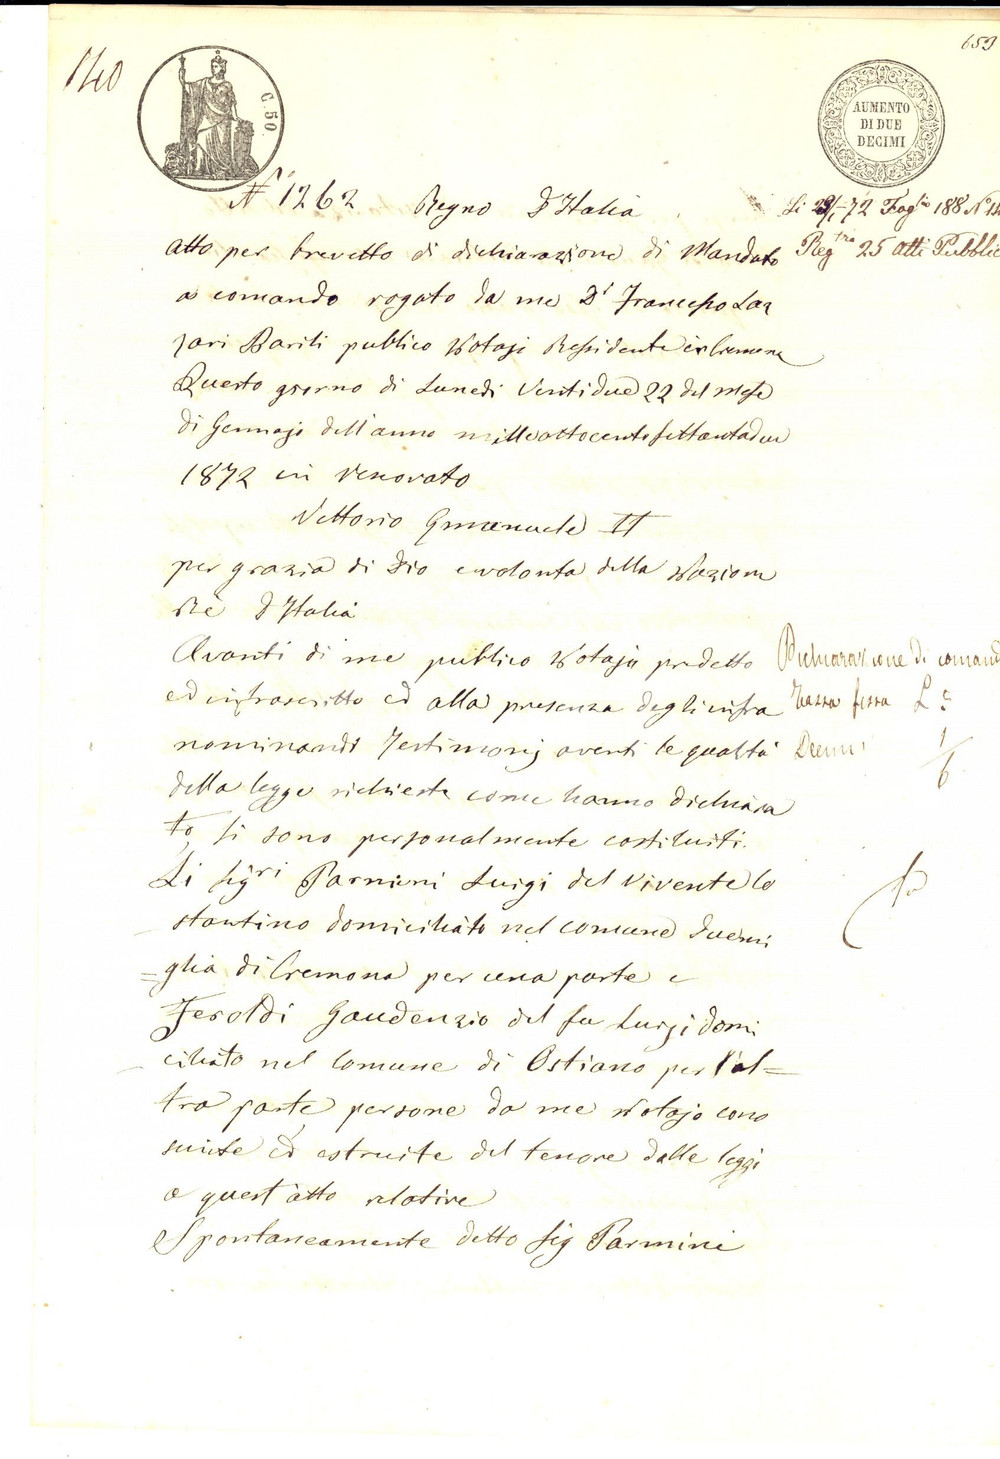 653
140
C. 50.
AUMENTO
DI DUE
DECIMI
N° 1262 Regno D'Italia
Li 23/1-72 Fog^lio 188 N°
Reg^tro 25 atti Pubblic
atto per brevetto di dichiarazione di Mandato
a comando rogato da me D^r Francesco Laz
zari Bariti publico Notajo Residente in Cremona
Questo giorno di Lunedi Ventidue 22 del mese
di Gennajo dell'anno milleottocentosettantadue
1872 in Vescovato
Vittorio Emanuele II
per grazia di Dio e volonta della Nazione
Rè d'Italia
Avanti di me publico Notajo predetto
ed infrascritto ed alla presenza degli infra
nominandi Testimonj aventi le qualità
della legge richieste come hanno dichiara
to, si sono personalmente costituiti.
Dichiarazione di comand
Tassa fissa L^e
Decimi 1/6
Li Sig^ri Parmini Luigi del vivente Co
stantino domiciliato nel comune Duemi
glia di Cremona per una parte e
Feroldi Gaudenzio del fu Luigi domi
ciliato nel Comune di Ostiano per l'al=
tra parte persone da me Notajo cono
sciute ed istruite del tenore delle leggi
a quest'atto relative
Spontaneamente detto Sig Parmini